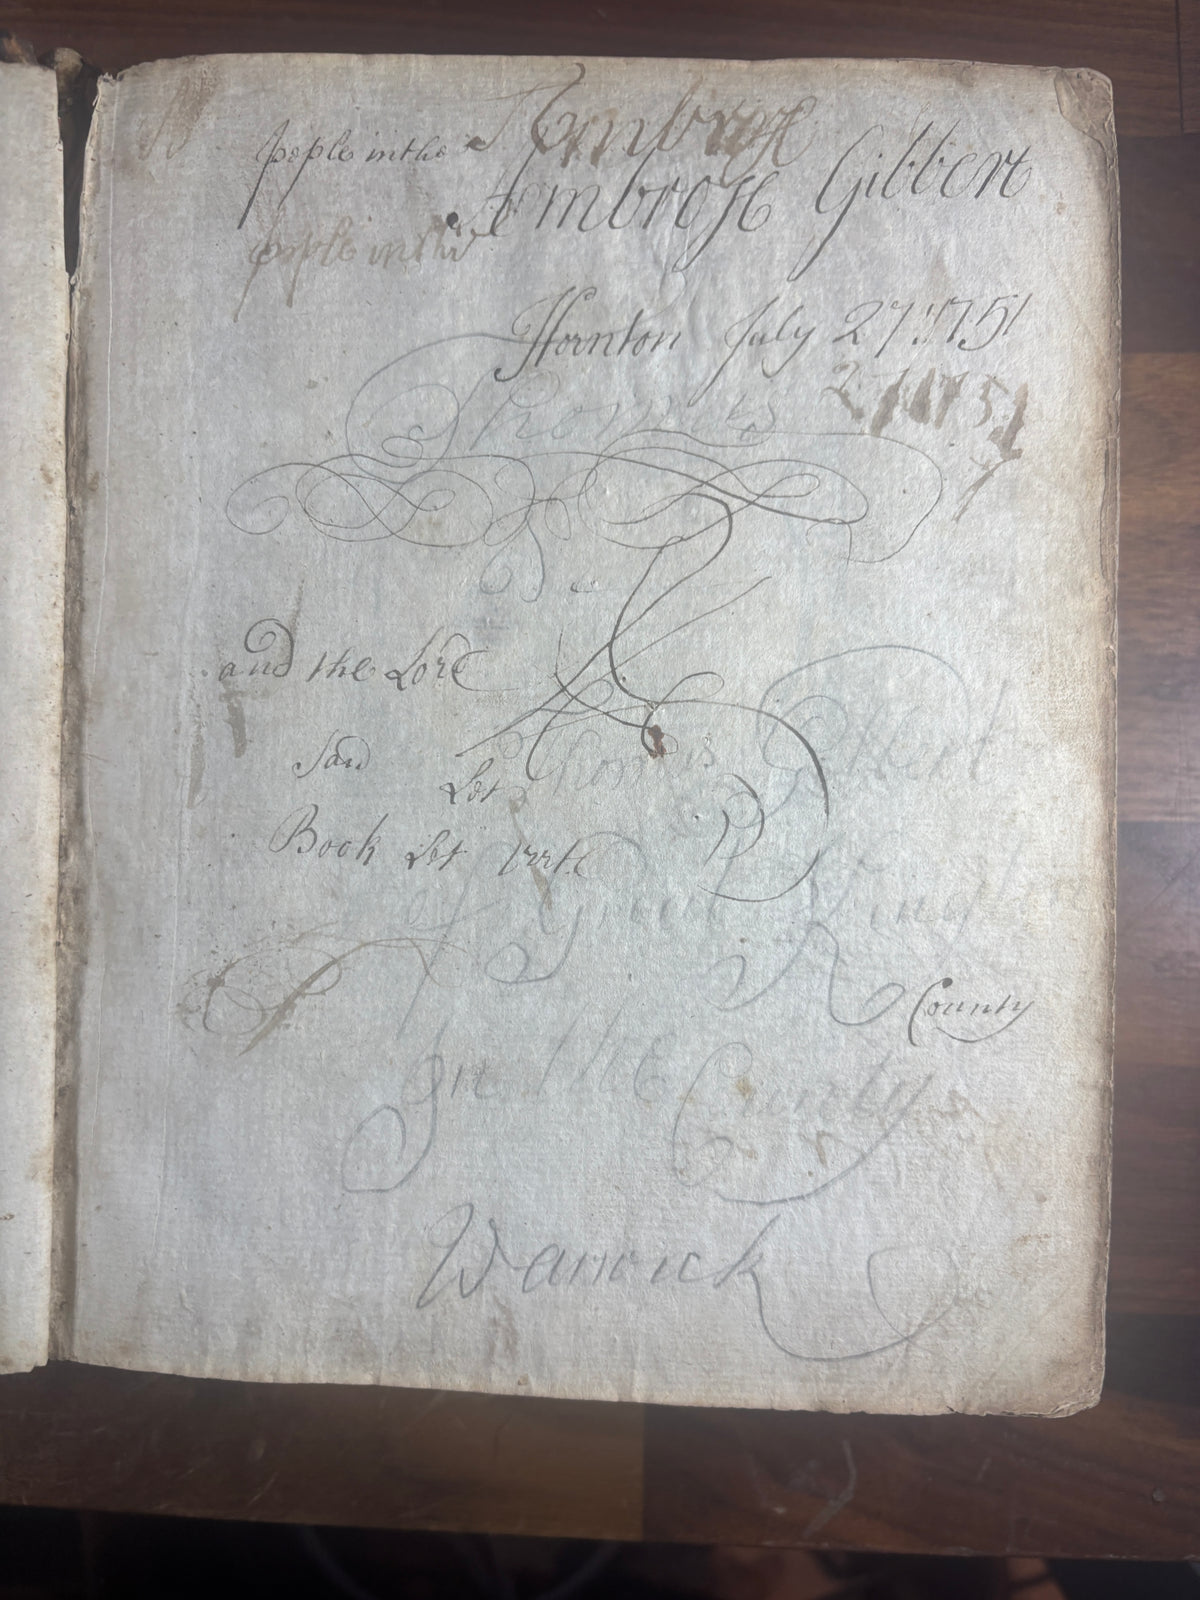 Ambrose
people in the
Ambrose Gibbert
people in the
Hornton July 27 1751
27 1751
Thomas
and the Lord
Said
Let Thomas Gilbert
Book Let
of
County
In the County
Warwick